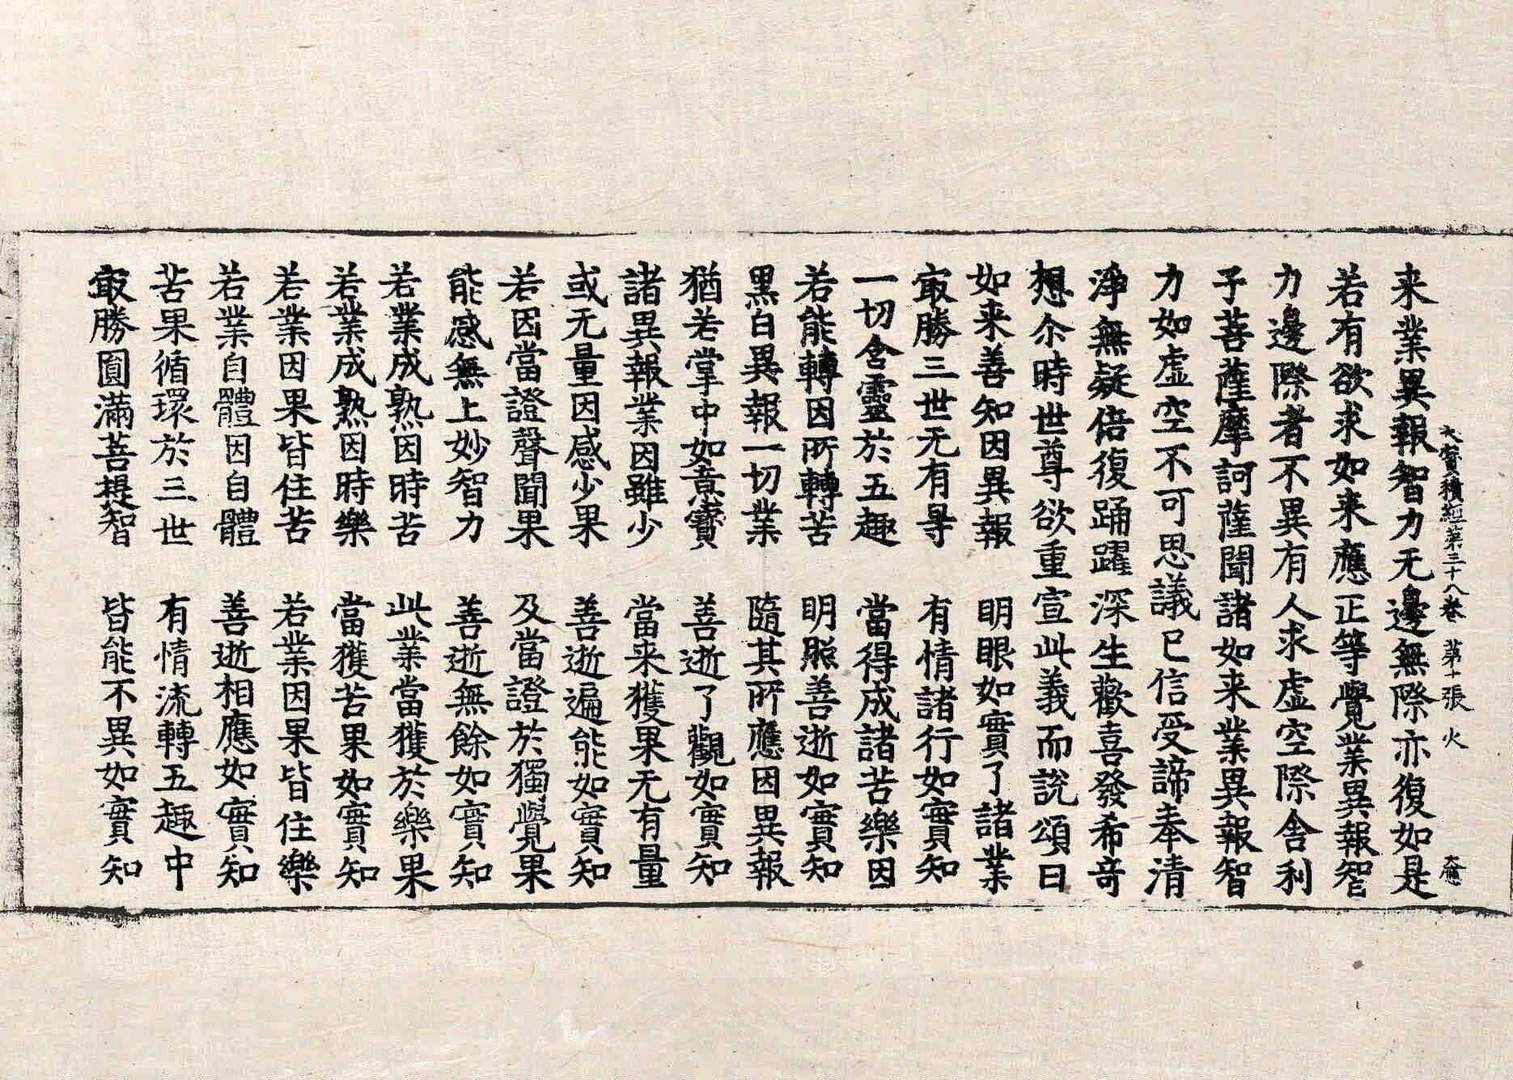 大寳積經苐三十八卷 苐十張 火
大應
来業異報智力无邊無際亦復如是
若有欲求如来應正等覺業異報智
力邊際者不異有人求虚空際舎利
子菩薩摩訶薩聞諸如来業異報智
力如虚空不可思議已信受諦奉清
淨無疑倍復踊躍深生歡喜發希竒
想尒時世尊欲重宣此義而說頌曰
如来善知因異報 明眼如實了諸業
㝡勝三世无有㝵 有情諸行如實知
一切含靈於五趣 當得成諸苦樂因
若能轉因所轉苦 明照善逝如實知
黑白異報一切業 隨其所應因異報
猶若掌中如意寳 善逝了觀如實知
諸異報業因雖少 當来獲果无有量
或无量因感少果 善逝遍能如實知
若因當證聲聞果 及當證於獨覺果
能感無上妙智力 善逝無餘如實知
若業成熟因時苦 此業當獲於樂果
若業成熟因時樂 當獲苦果如實知
若業因果皆住苦 若業因果皆住樂
若業自體因自體 善逝相應如實知
苦果循環於三世 有情流轉五趣中
㝡勝圓滿菩提智 皆能不異如實知